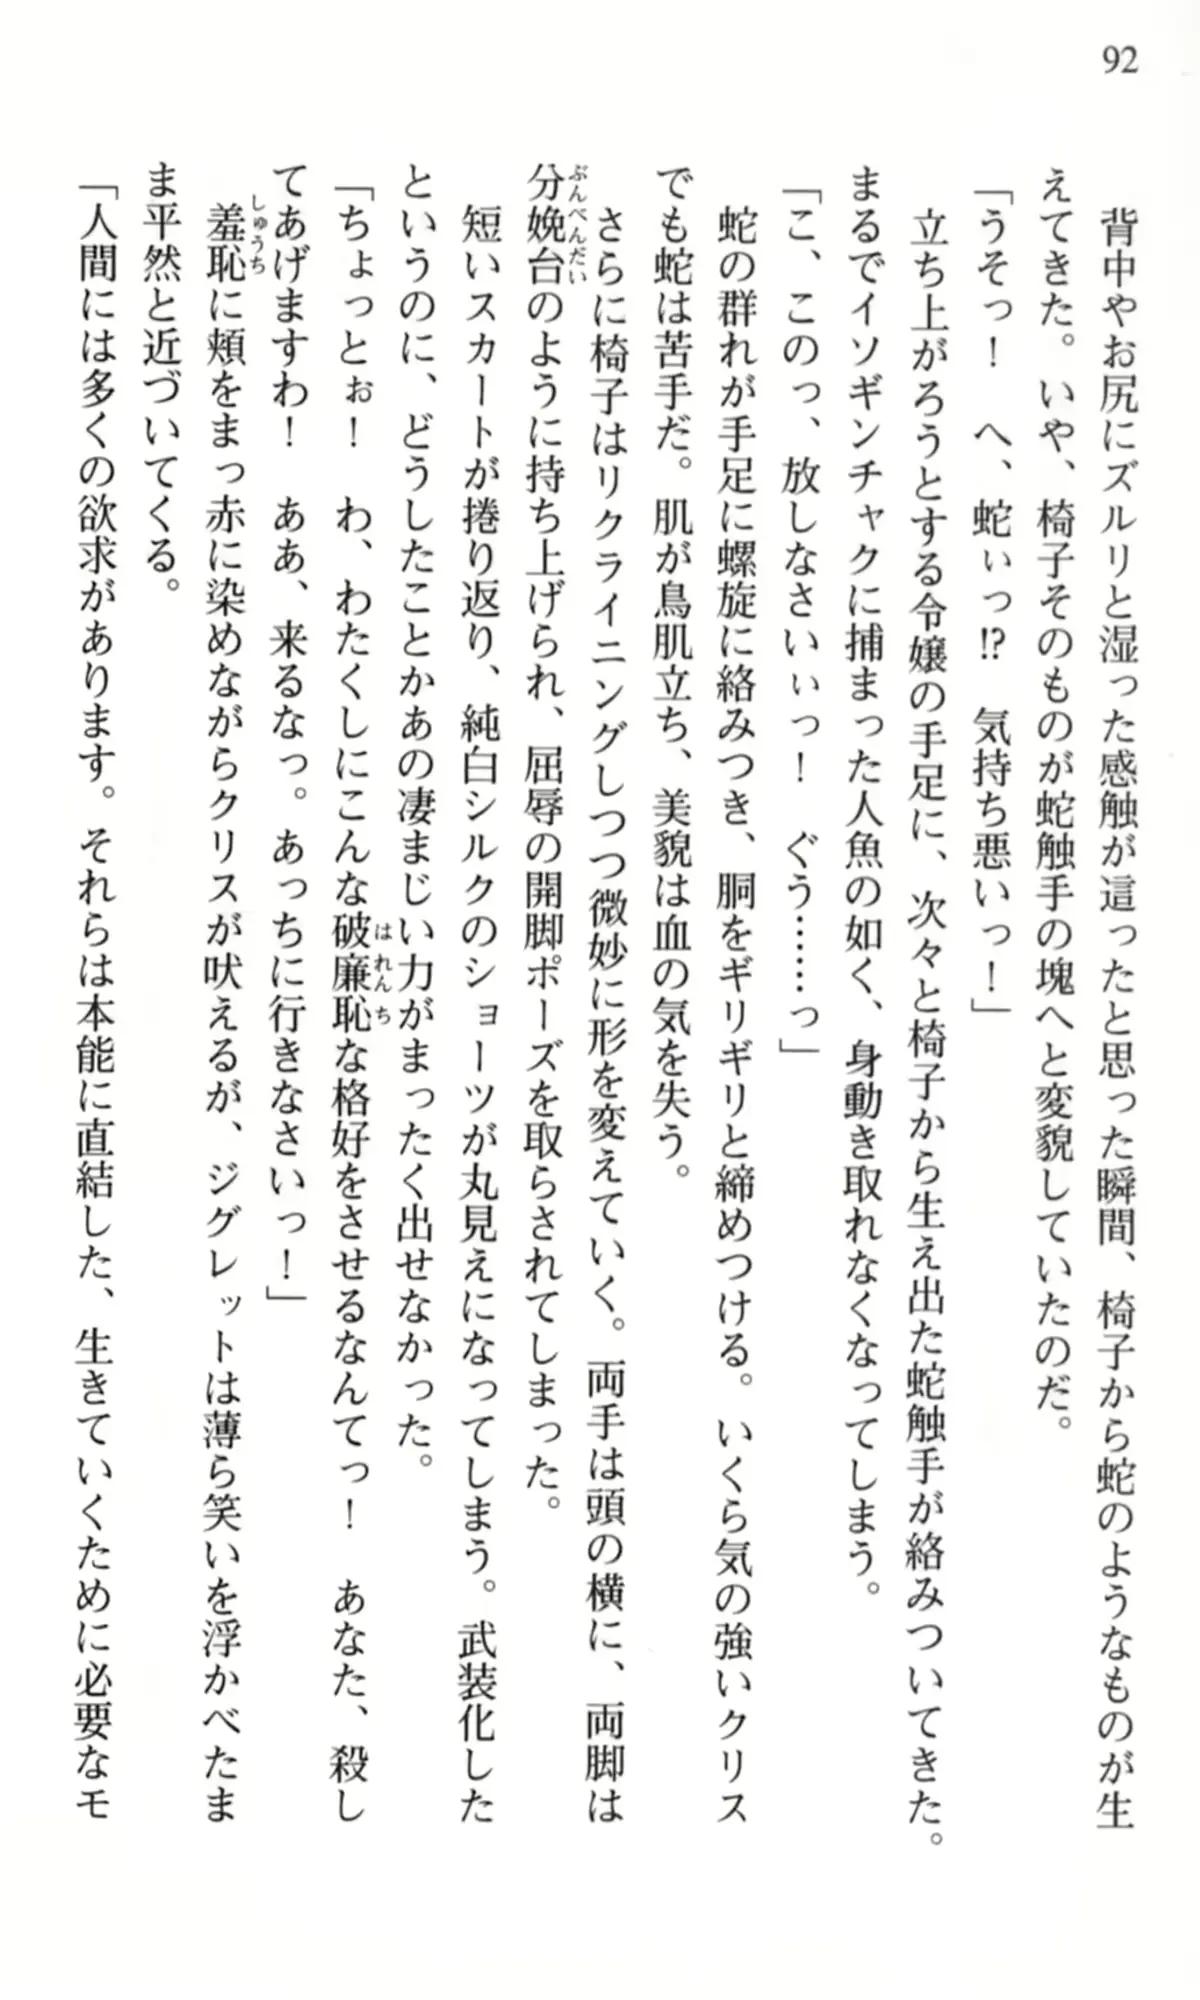 92
背中やお尻にズルリと湿った感触が這ったと思った瞬間、椅子から蛇のようなものが生
えてきた。いや、椅子そのものが蛇触手の塊へと変貌していたのだ。
「うそっ！　へ、蛇ぃっ!?　気持ち悪いっ！」
立ち上がろうとする令嬢の手足に、次々と椅子から生え出た蛇触手が絡みついてきた。
まるでイソギンチャクに捕まった人魚の如く、身動き取れなくなってしまう。
「こ、このっ、放しなさいぃっ！　ぐう……っ」
蛇の群れが手足に螺旋に絡みつき、胴をギリギリと締めつける。いくら気の強いクリス
でも蛇は苦手だ。肌が鳥肌立ち、美貌は血の気を失う。
さらに椅子はリクライニングしつつ微妙に形を変えていく。両手は頭の横に、両脚は
分娩台のように持ち上げられ、屈辱の開脚ポーズを取らされてしまった。
ぶんべんだい
短いスカートが捲り返り、純白シルクのショーツが丸見えになってしまう。武装化した
というのに、どうしたことかあの凄まじい力がまったく出せなかった。
「ちょっとぉ！　わ、わたくしにこんな破廉恥な格好をさせるなんてっ！　あなた、殺し
はれんち
てあげますわ！　ああ、来るなっ。あっちに行きなさいっ！」
羞恥に頬をまっ赤に染めながらクリスが吠えるが、ジグレットは薄ら笑いを浮かべたま
しゅうち
ま平然と近づいてくる。
「人間には多くの欲求があります。それらは本能に直結した、生きていくために必要なモ